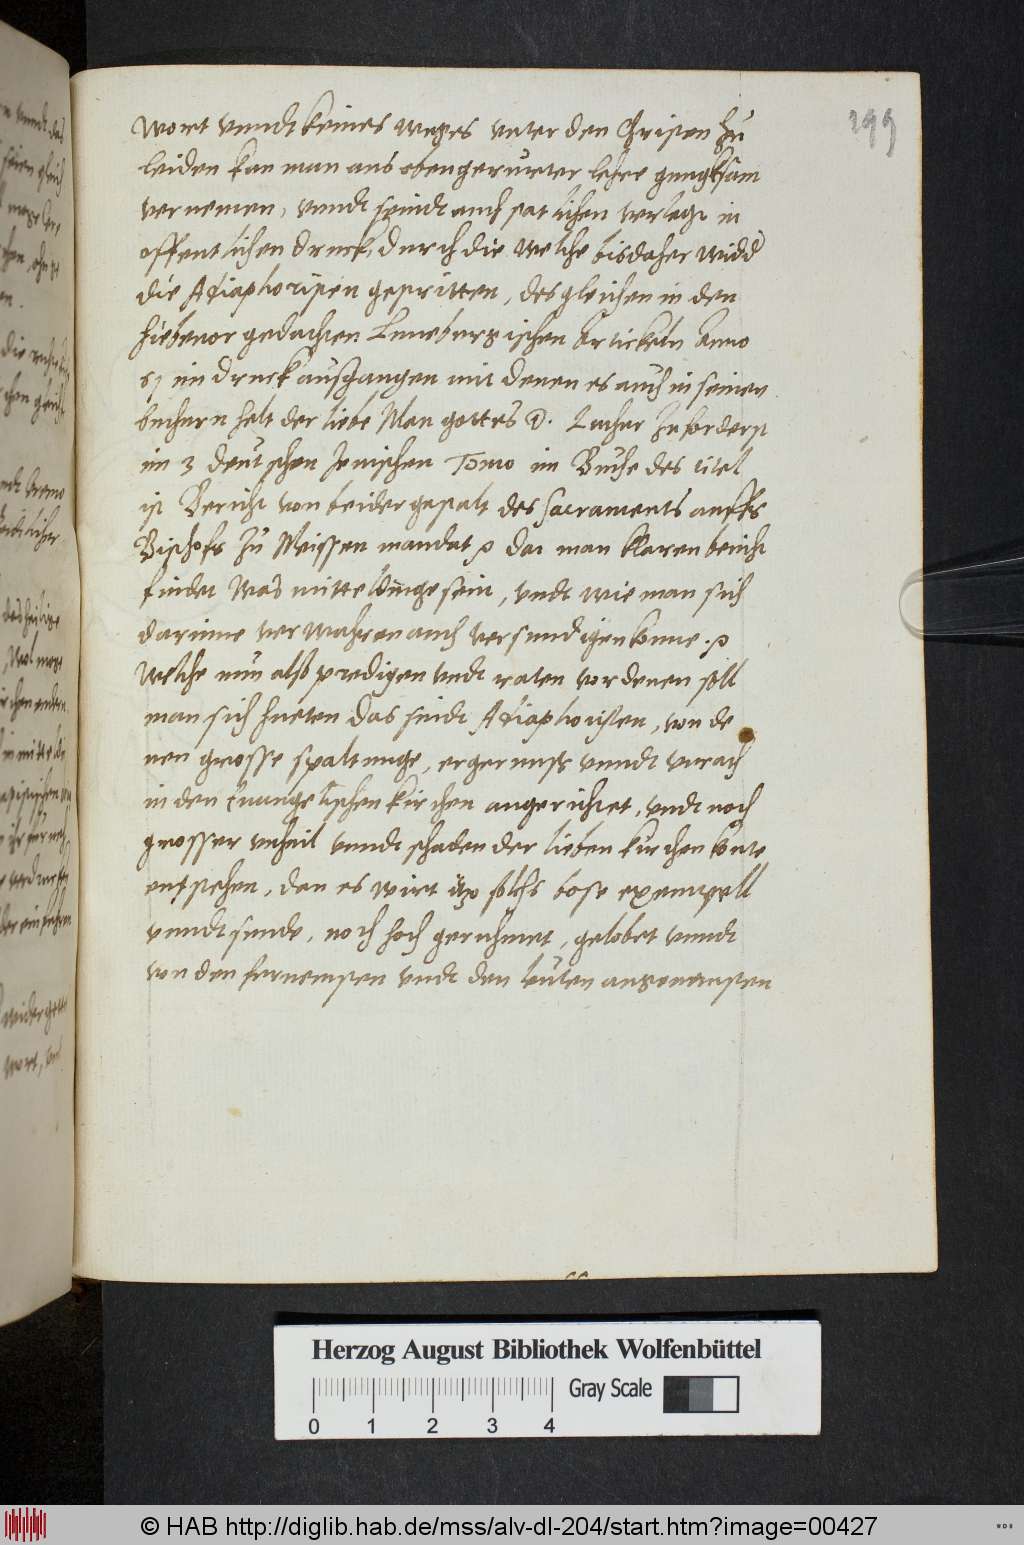 199
wort vnndt keines weges vnter den Christen zu
leiden kan man aus obengerurter lehre gnugksam
vernemen, vnndt seindt auch stat lichen verlegt in
offentlichen druck, durch die welche bisdaher widd
die Adiaphoristen gestritten, desgleichen in den
hiebeuor gedachten Luneburgischen Artickeln Anno
61 im druck außgangen mit denen es auch in seinen
buchern helt der liebe Man gottes D. Luther zuforderst
im 3 deutschen Jenischen Tomo im Buche des titel
ist Bericht von beider gestalt des Sacraments auffs
Bischofs zu Meissen mandat da man klaren bericht
findet was mitteldinge sein, vndt wie man sich
darinne verwahren auch versundigen konne.
Welche nun also predigen vndt raten vor denen soll
man sich hueten das sindt Adiaphoristen, von de
nen grosse spaltunge, ergernuß vnndt vnrath
in den Euangelischen kirchen angerichtet, vndt noch
grosser vnheil vnndt schaden der lieben kirchen konte
entstehen, dan es wirt itzo solchs bose exempell
vnndt sunde, noch hoch geruhmet, gelobet vnndt
von den furnemsten vndt den leuten angenemsten
Herzog August Bibliothek Wolfenbüttel
Gray Scale
0 1 2 3 4
© HAB http://diglib.hab.de/mss/alv-dl-204/start.htm?image=00427